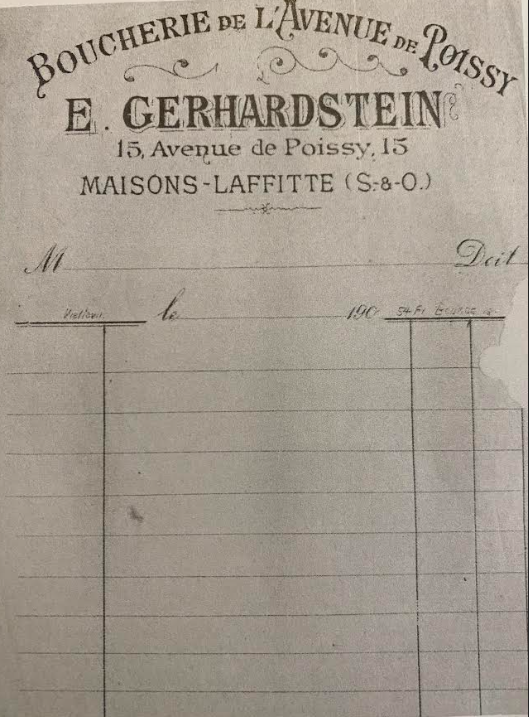 BOUCHERIE DE L'AVENUE DE POISSY
E. GERHARDSTEIN
15, Avenue de Poissy, 15
MAISONS-LAFFITTE (S.-&-O.)
M Doit
le 190